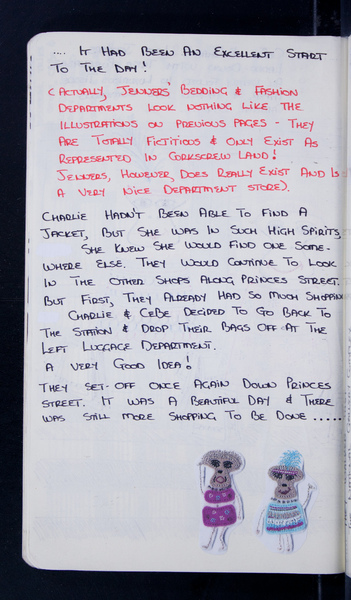 .... IT HAD BEEN AN EXCELLENT START
TO THE DAY!
(ACTUALLY, JENNERS' BEDDING & FASHION
DEPARTMENTS LOOK NOTHING LIKE THE
ILLUSTRATIONS ON PREVIOUS PAGES - THEY
ARE TOTALLY FICTITIOUS & ONLY EXIST AS
REPRESENTED IN CORKSCREW LAND!
JENNERS, HOWEVER, DOES REALLY EXIST AND IS
A VERY NICE DEPARTMENT STORE).
CHARLIE HADN'T BEEN ABLE TO FIND A
JACKET, BUT SHE WAS IN SUCH HIGH SPIRITS
SHE KNEW SHE WOULD FIND ONE SOME-
WHERE ELSE. THEY WOULD CONTINUE TO LOOK
IN THE OTHER SHOPS ALONG PRINCES STREET.
BUT FIRST, THEY ALREADY HAD SO MUCH SHOPPING
CHARLIE & CEBE DECIDED TO GO BACK TO
THE STATION & DROP THEIR BAGS OFF AT THE
LEFT LUGGAGE DEPARTMENT.
A VERY GOOD IDEA!
THEY SET-OFF ONCE AGAIN DOWN PRINCES
STREET. IT WAS A BEAUTIFUL DAY & THERE
WAS STILL MORE SHOPPING TO BE DONE .....